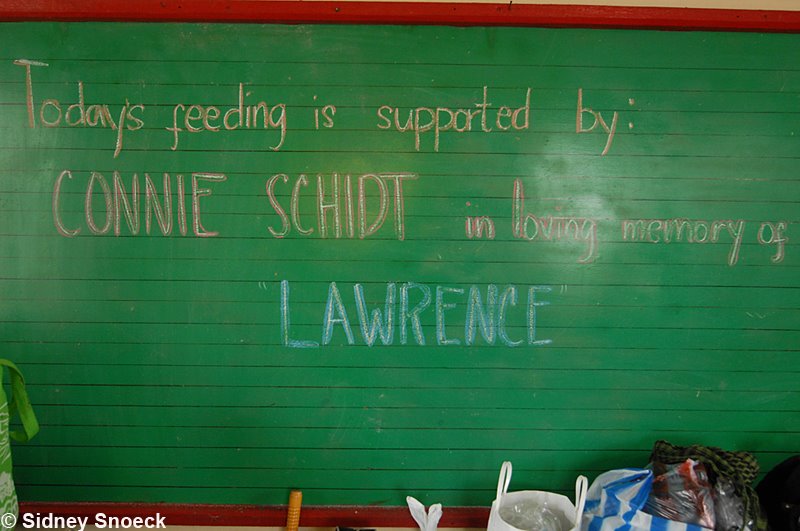 Today's feeding is supported by:
CONNIE SCHIDT in loving memory of
"LAWRENCE"
© Sidney Snoeck